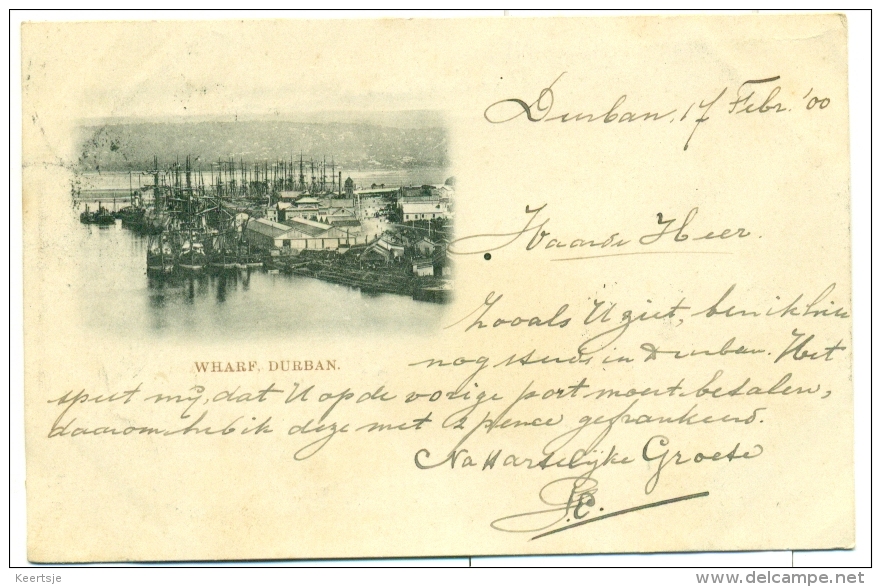 Durban, 17 Febr. '00
Waarde Heer.
Zooals U ziet, ben ik hier
nog steeds in Durban. Het
speet mij, dat U op de vorige port moest betalen,
daarom heb ik deze met 2 pence gefrankeerd.
Na Hartelijke Groete
WHARF, DURBAN.
Keertsje
delcampe.net